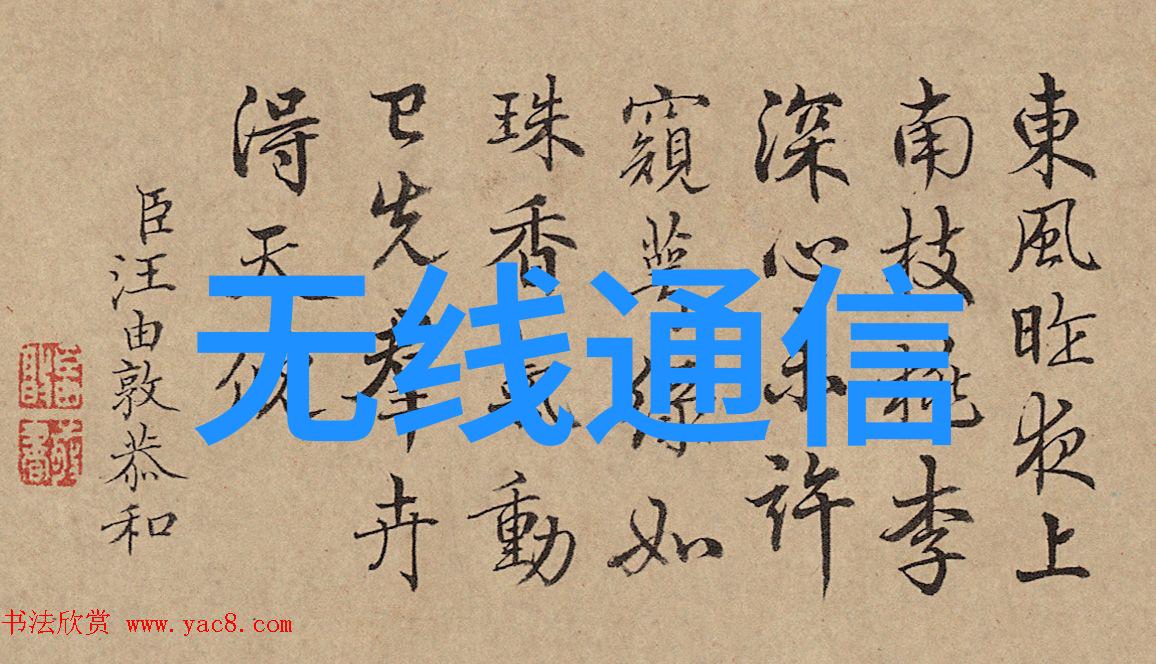 東風昨夜上
南枝桃李
深心未許
窺如
珠香動
已先羣卉
得天
臣汪由敦恭和
无线通信
书法欣赏 www.yac8.com